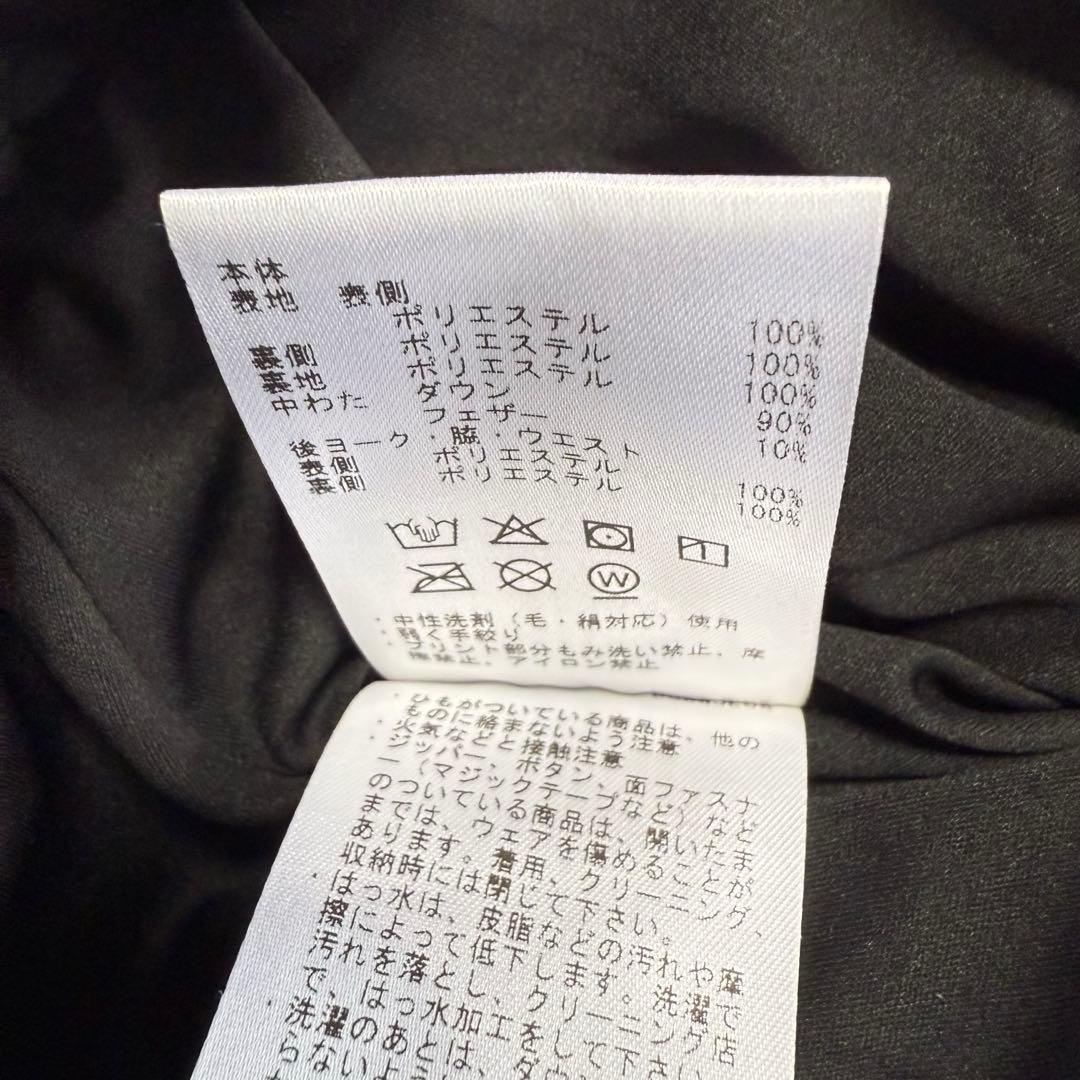 本体
表地 表側
ポリエステル 100%
裏側 ポリエステル 100%
裏地 ポリエステル 100%
中わた ダウン 90%
フェザー 10%
後ヨーク・脇・ウエスト
表側 ポリエステル 100%
裏側 ポリエステル 100%
W
・中性洗剤(毛・絹対応)使用
・弱く手絞り
・プリント部分もみ洗い禁止、摩
擦禁止、アイロン禁止
・ひもがついている商品は、他の
ものに絡まないよう注意
・火気などと接触注意
・ジッパー、ボタン、面ファスナ
ー(マジックテープなど)などの
ついている商品は、開いたま
までは、ウェアを傷めることが
あります。着用、クリーニング、
収納時には閉じて下さい。
・はっ水は、皮脂などの汚れや摩
擦によって低下します。洗濯で
汚れを落とし、クリーニング店
で、はっ水加工をして下さい
・洗濯のあとは、ダウ